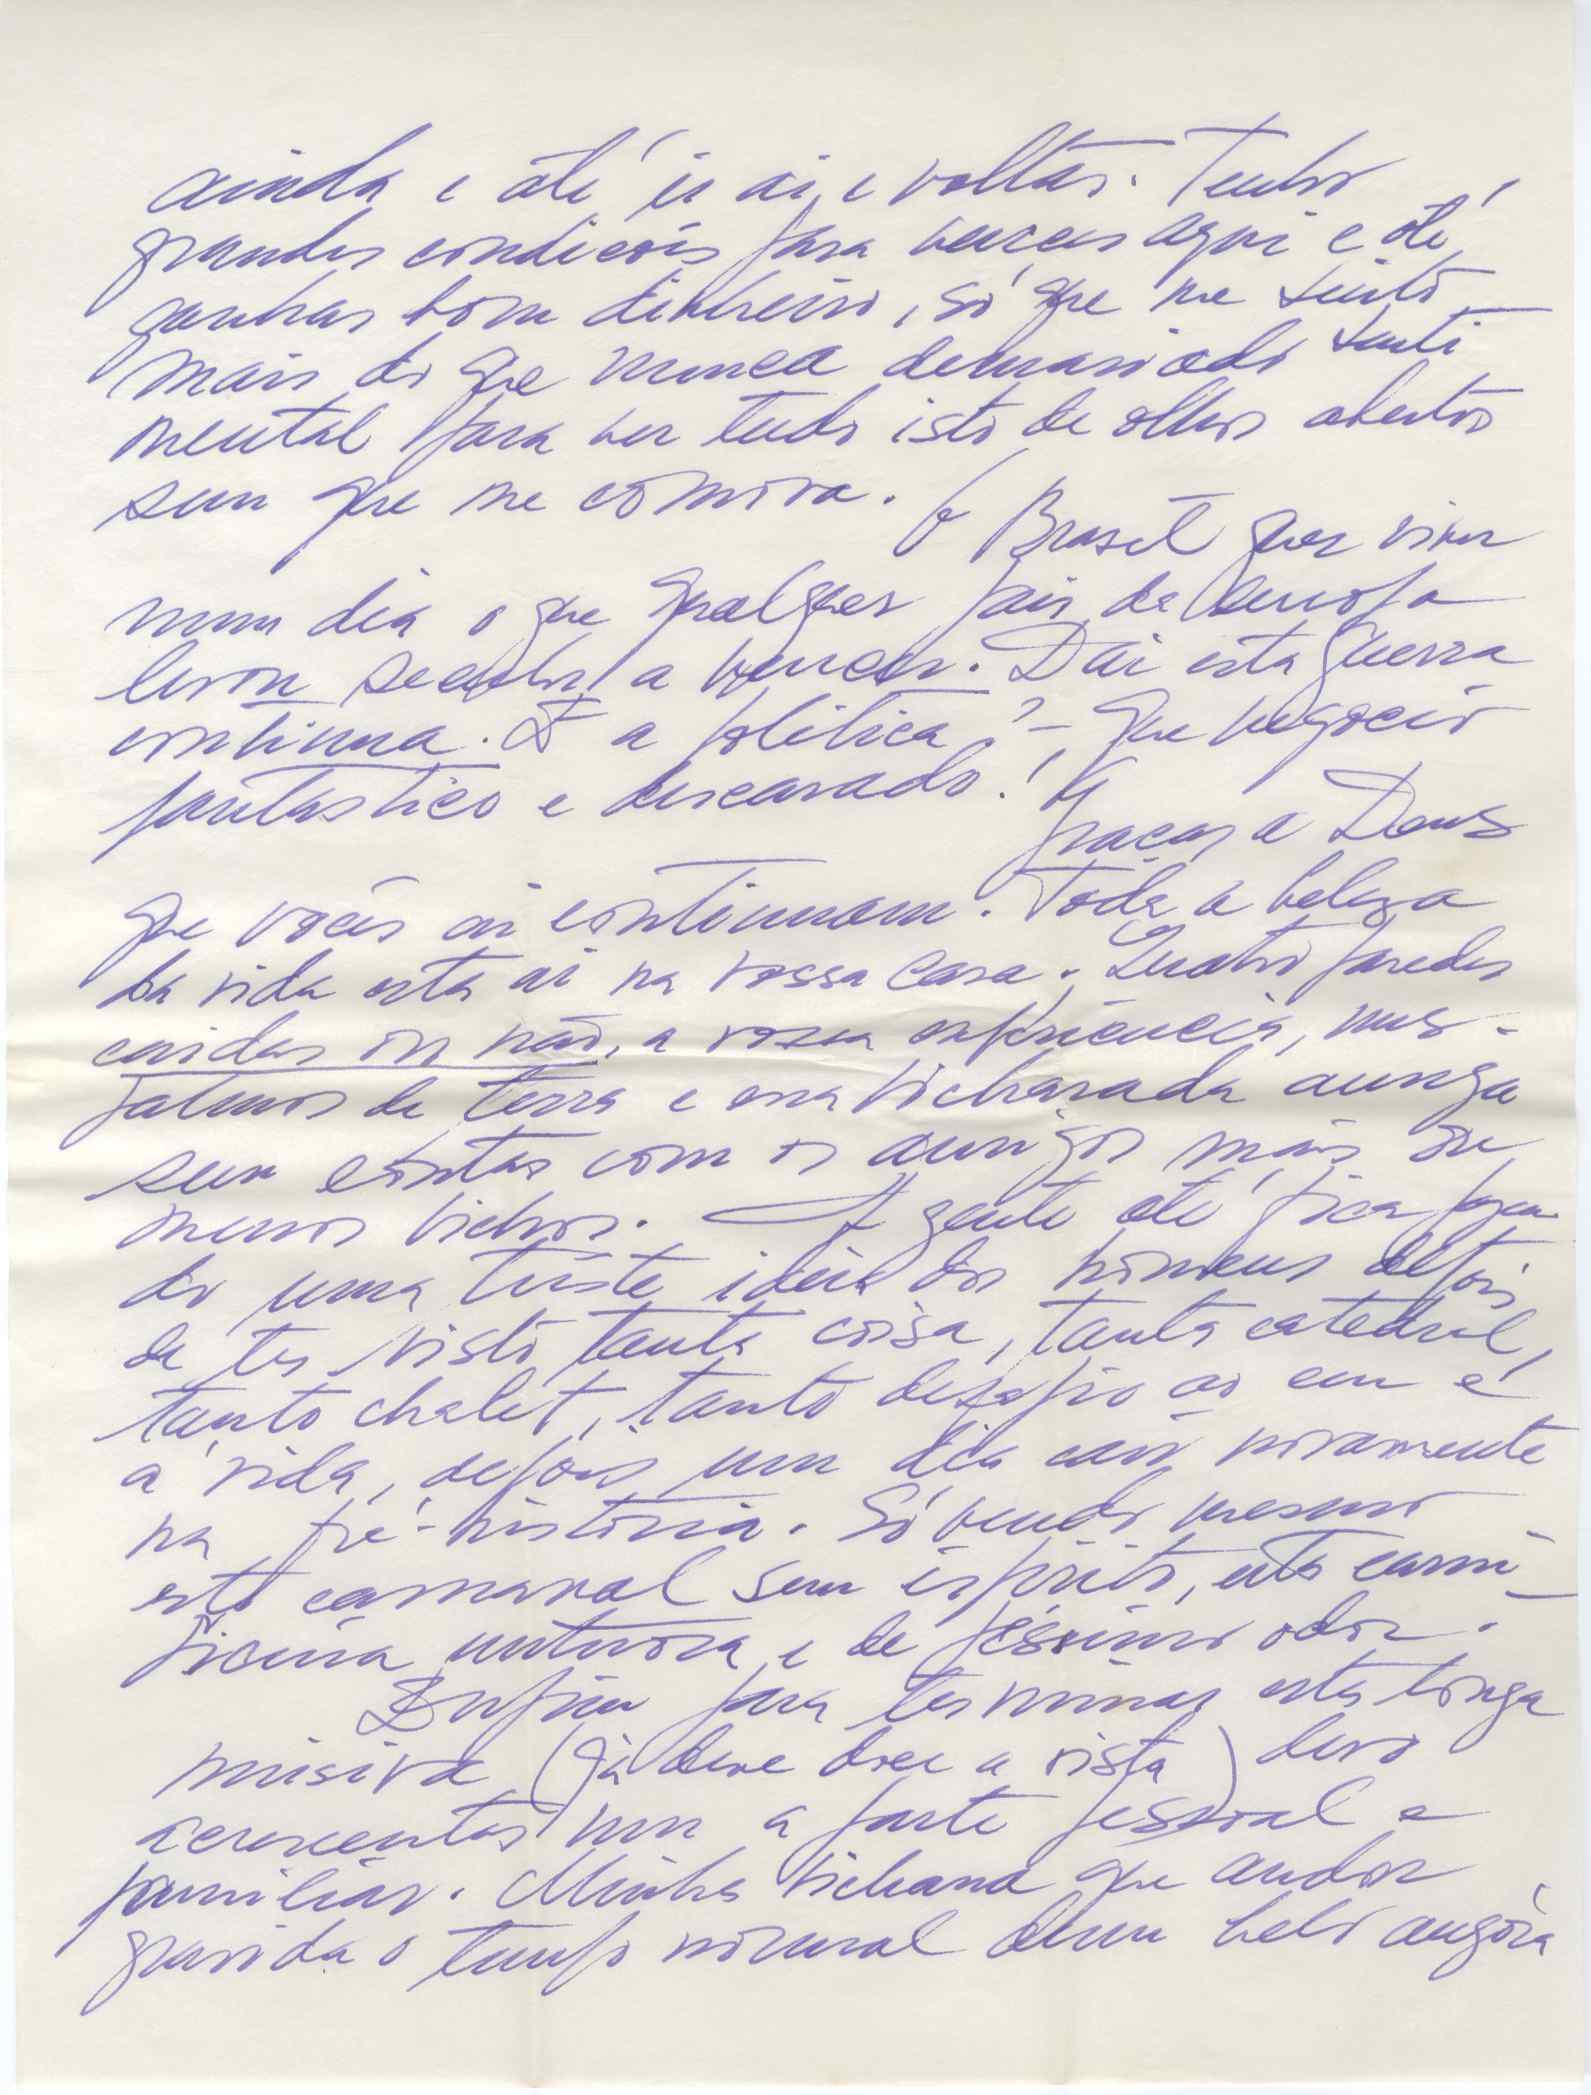 ainda e até ir aí e voltar. Tenho
grandes condições para vencer aqui e até
ganhar bom dinheiro, só que me sinto
mais do que nunca demasiado senti
mental para ver tudo isto de olhos abertos
sem que me comova. O Brasil quer viver
num dia o que qualquer país da Europa
levou seculos a vencer. Daí esta guerra
continua. E a politica? – Que negocio
fantastico e descarado! Graças a Deus
que vocês aí continuam. Toda a beleza
da vida esta aí na vossa casa. Quatro paredes
caidas ou não, a vossa experiencia, uns –
palmos de terra e essa bicharada amiga
sem contar com os amigos mais ou
menos bichos. A gente até fica fazen
do uma triste ideia dos homens depois
de ter visto tanta coisa, tanta catedral,
tanto chalet, tanto desafio ao ceu e
à vida, depois um dia cair novamente
na pré-história. Só vendo mesmo
este carnaval sem espirito, esta carni –
ficina untuosa e de péssimo odor.
Enfim para terminar esta longa
missiva (já deve doer a vista) devo
acrescentar um a parte pessoal e
familiar. Minha bichana que andou
gravida o tempo normal dum belo angóra